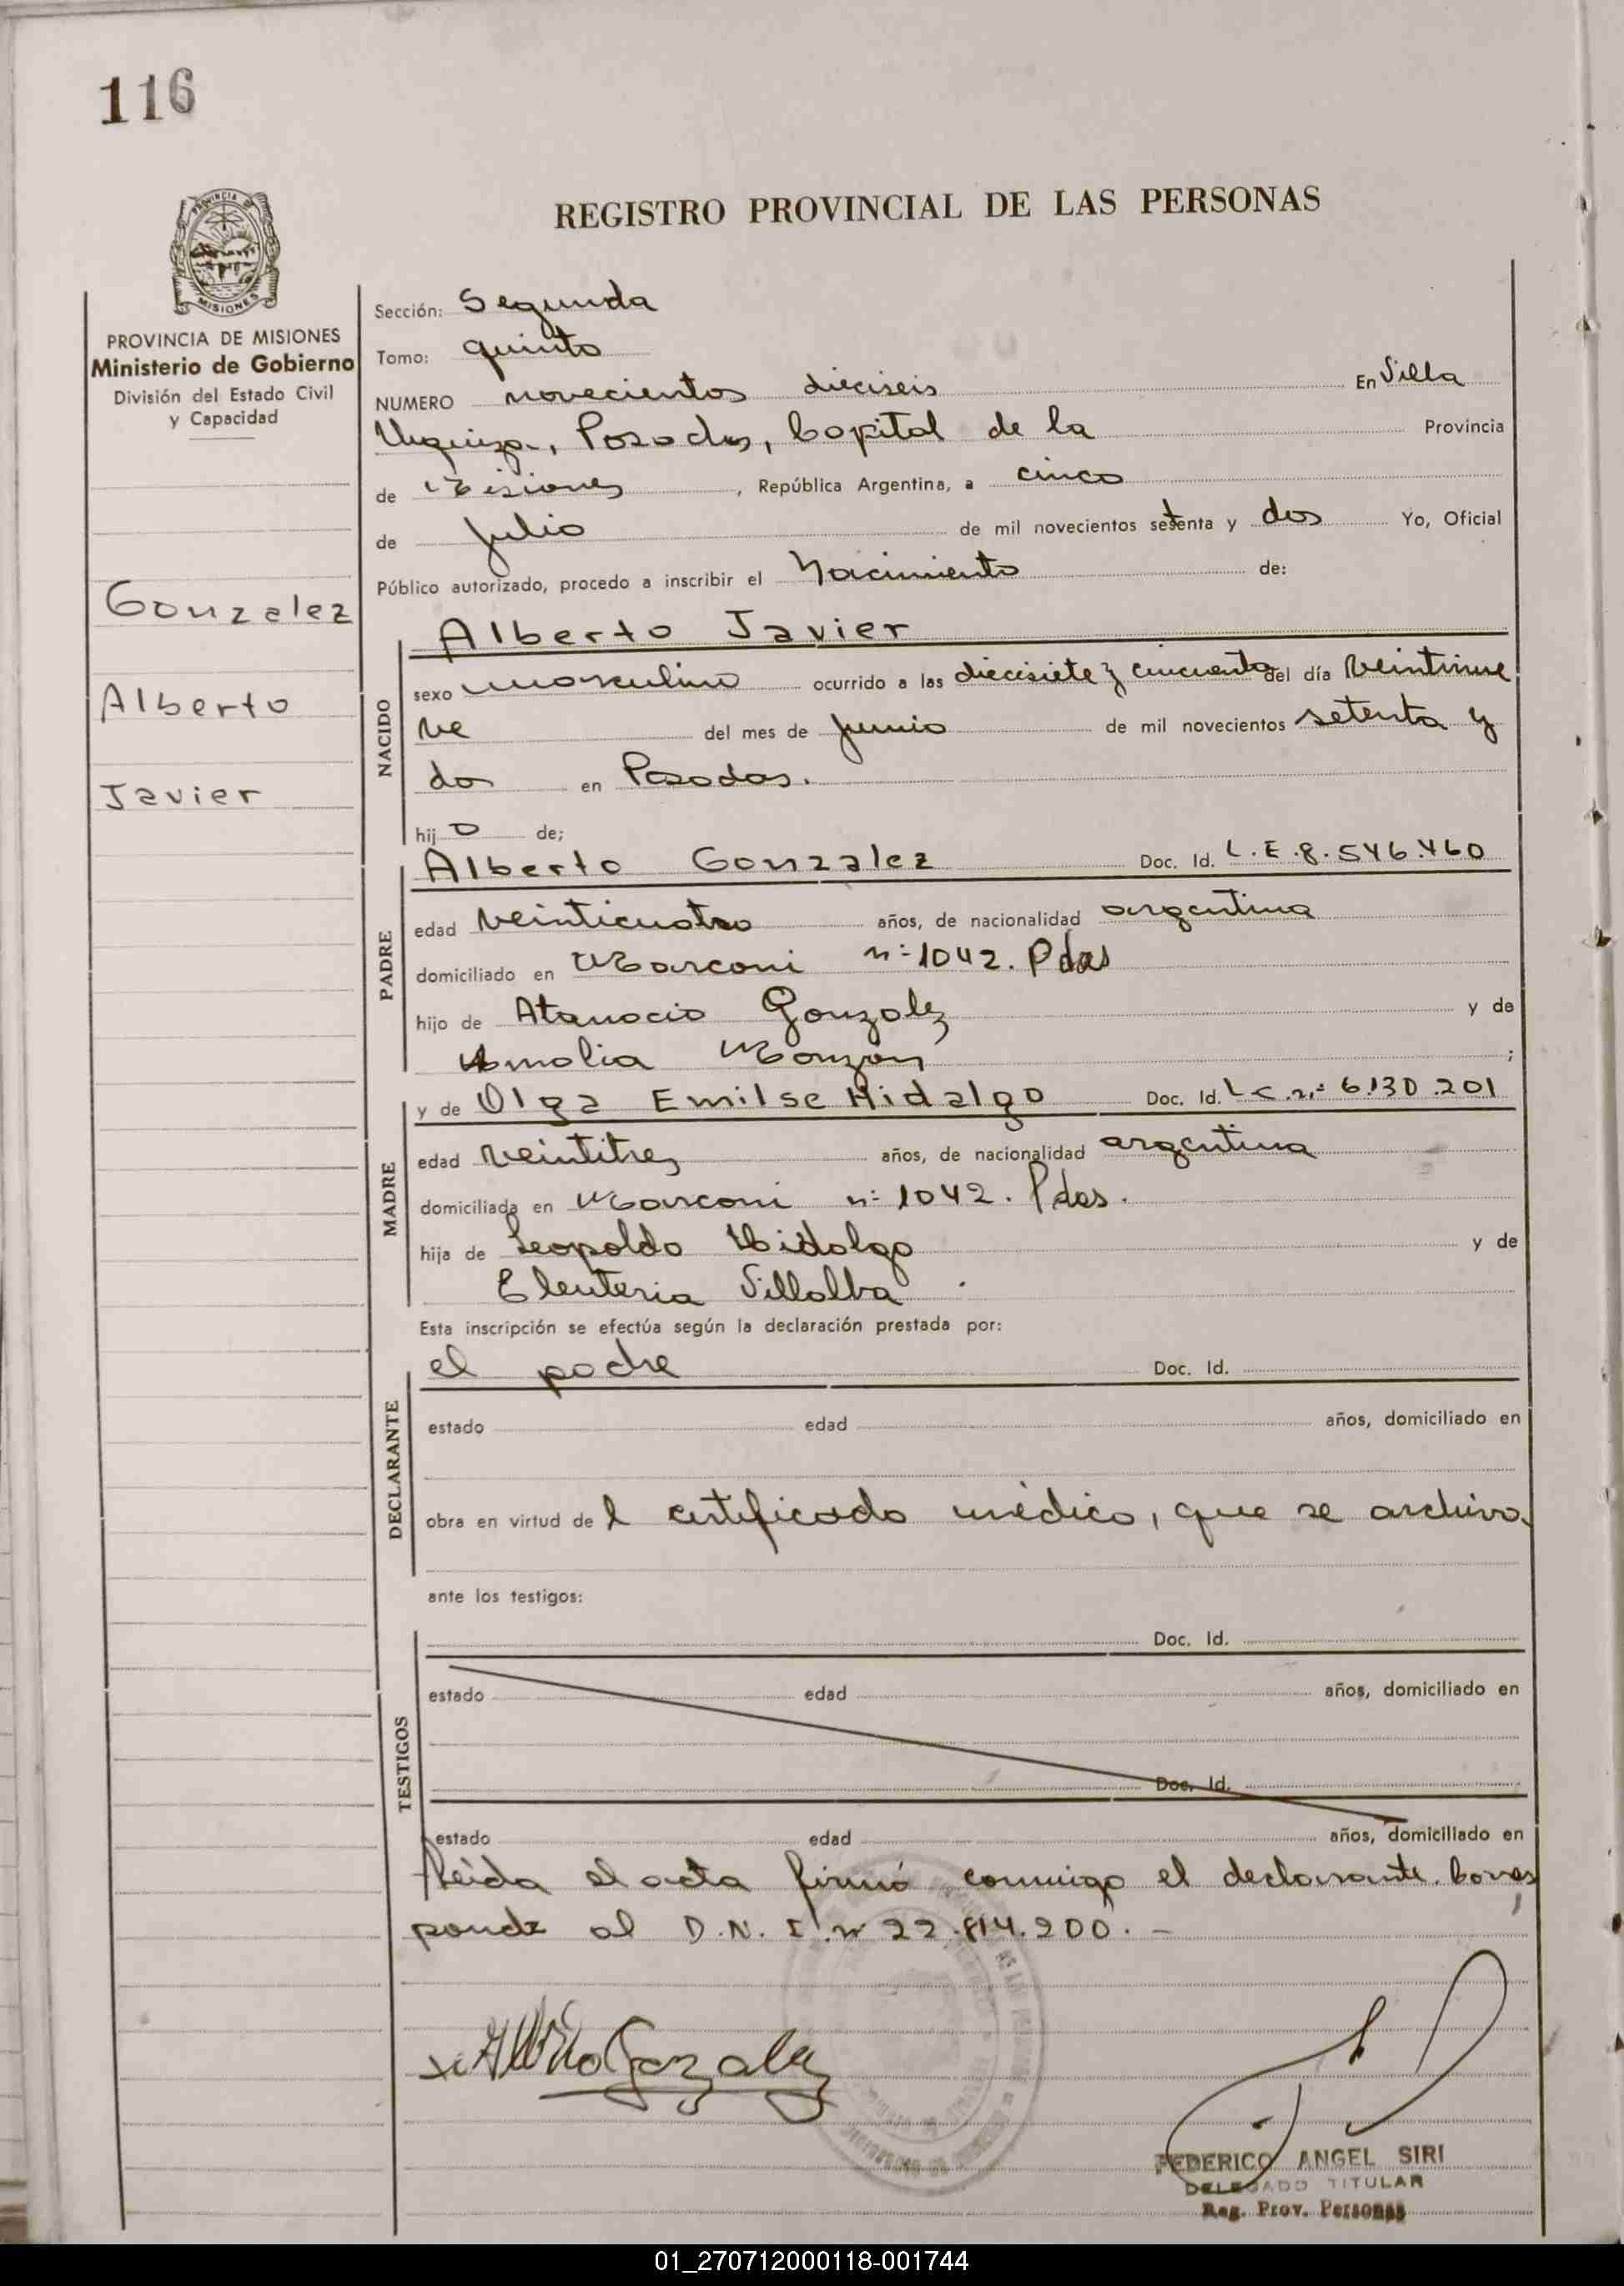 116
PROVINCIA DE
MISIONES
REGISTRO PROVINCIAL DE LAS PERSONAS
PROVINCIA DE MISIONES
Ministerio de Gobierno
División del Estado Civil
y Capacidad
Gonzalez
Alberto
Javier
Sección: Segunda
Tomo: quinto
NUMERO novecientos dieciseis En Villa
Urquiza, Posadas, Capital de la Provincia
de Misiones, República Argentina, a cinco
de Julio de mil novecientos setenta y dos Yo, Oficial
Público autorizado, procedo a inscribir el Nacimiento de:
NACIDO
Alberto Javier
sexo masculino ocurrido a las diecisiete y cincuenta del día veintinue
ve del mes de junio de mil novecientos setenta y
dos en Posadas.
hijo de;
PADRE
Alberto Gonzalez Doc. Id. L.E.8.546.460
edad veinticuatro años, de nacionalidad argentina
domiciliado en Marconi nº 1042. Pdas
hijo de Atanacio Gonzalez y de
Amalia Monzon ;
MADRE
y de Olga Emilse Hidalgo Doc. Id. L.C.nº 6.130.201
edad veintitres años, de nacionalidad argentina
domiciliada en Marconi nº 1042. Pdas.
hija de Leopoldo Hidalgo y de
Eleuteria Villalba.
Esta inscripción se efectúa según la declaración prestada por:
DECLARANTE
el padre Doc. Id.
estado edad años, domiciliado en
obra en virtud del certificado médico, que se archiva
ante los testigos:
TESTIGOS
Doc. Id.
estado edad años, domiciliado en
Doc. Id.
estado edad años, domiciliado en
leída el acta firmó conmigo el declarante. Corres
ponde al D.N.I. nº 22.814.200.-
Alberto Gonzalez
FEDERICO ANGEL SIRI
DELEGADO TITULAR
Reg. Prov. Personas
01_270712000118-001744